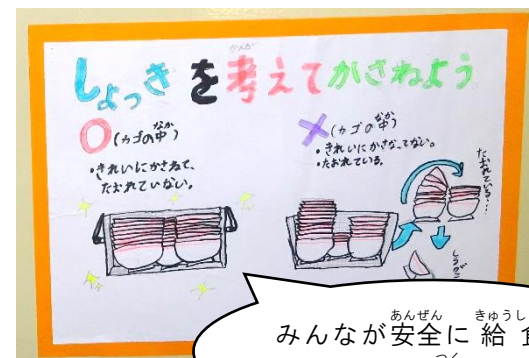 しょっきを考えてかさねよう
かんが
○(カゴの中)
なか
・きれいにかさねて、
たおれていない。
×(カゴの中)
なか
・きれいにかさなってない。
・たおれている。
たおれている…
みんなが安全に給
あんぜん きゅうし